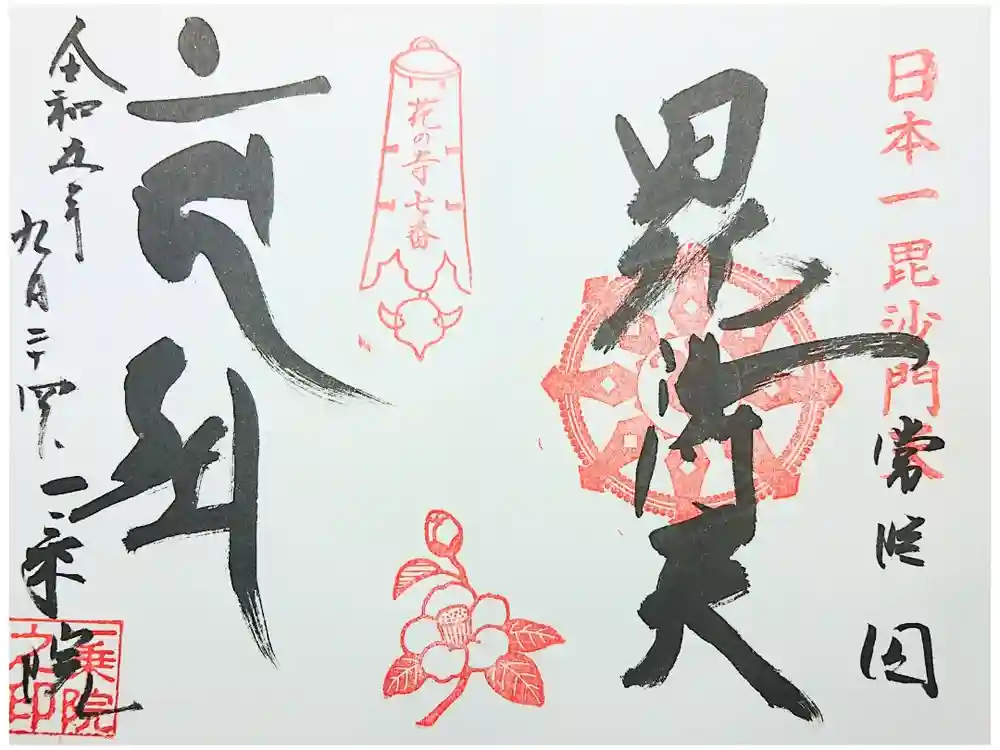 日本一毘沙門天
常陸国
毘沙門天
花の寺七番
令和五年
九月二十四日
一乗院
一乗院
之印